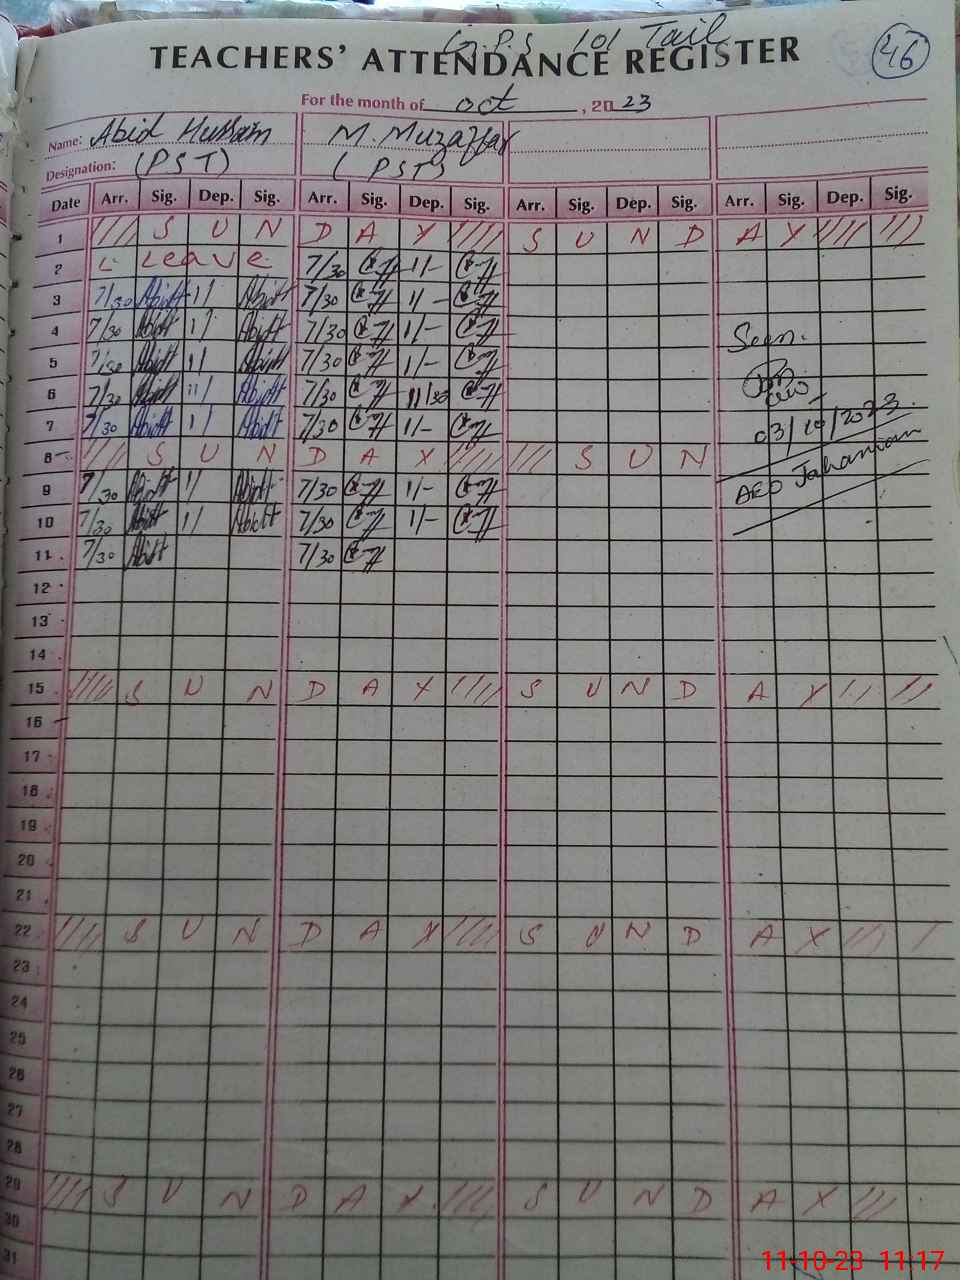 G.P.S 101 Tail
46
TEACHERS' ATTENDANCE REGISTER
For the month of oct , 2023
Name: Abid Hussain M. Muzaffar
Designation: (PST) (PST)
Date Arr. Sig. Dep. Sig. Arr. Sig. Dep. Sig. Arr. Sig. Dep. Sig. Arr. Sig. Dep. Sig.
1 S U N D A Y S U N D A Y
2 L Leave 7/30 1/-
3 7/30 Abid 1/ Abid 7/30 1/-
4 7/30 Abid 1/ Abid 7/30 1/- Seen.
5 7/30 Abid 1/ Abid 7/30 1/-
6 7/30 Abid 11/ Abid 7/30 11/30
7 7/30 Abid 1/ Abid 7/30 1/- 03/10/2023.
8 S U N D A Y S U N
9 7/30 Abid 1/ Abid 7/30 1/- AEO Jahanian
10 7/30 Abid 1/ Abid 7/30 1/-
11 7/30 Abid 7/30
12
13
14
15 S U N D A Y S U N D A Y
16
17
18
19
20
21
22 S U N D A Y S U N D A Y
23
24
25
26
27
28
29 S U N D A Y S U N D A Y
30
31
11-10-23 11:17